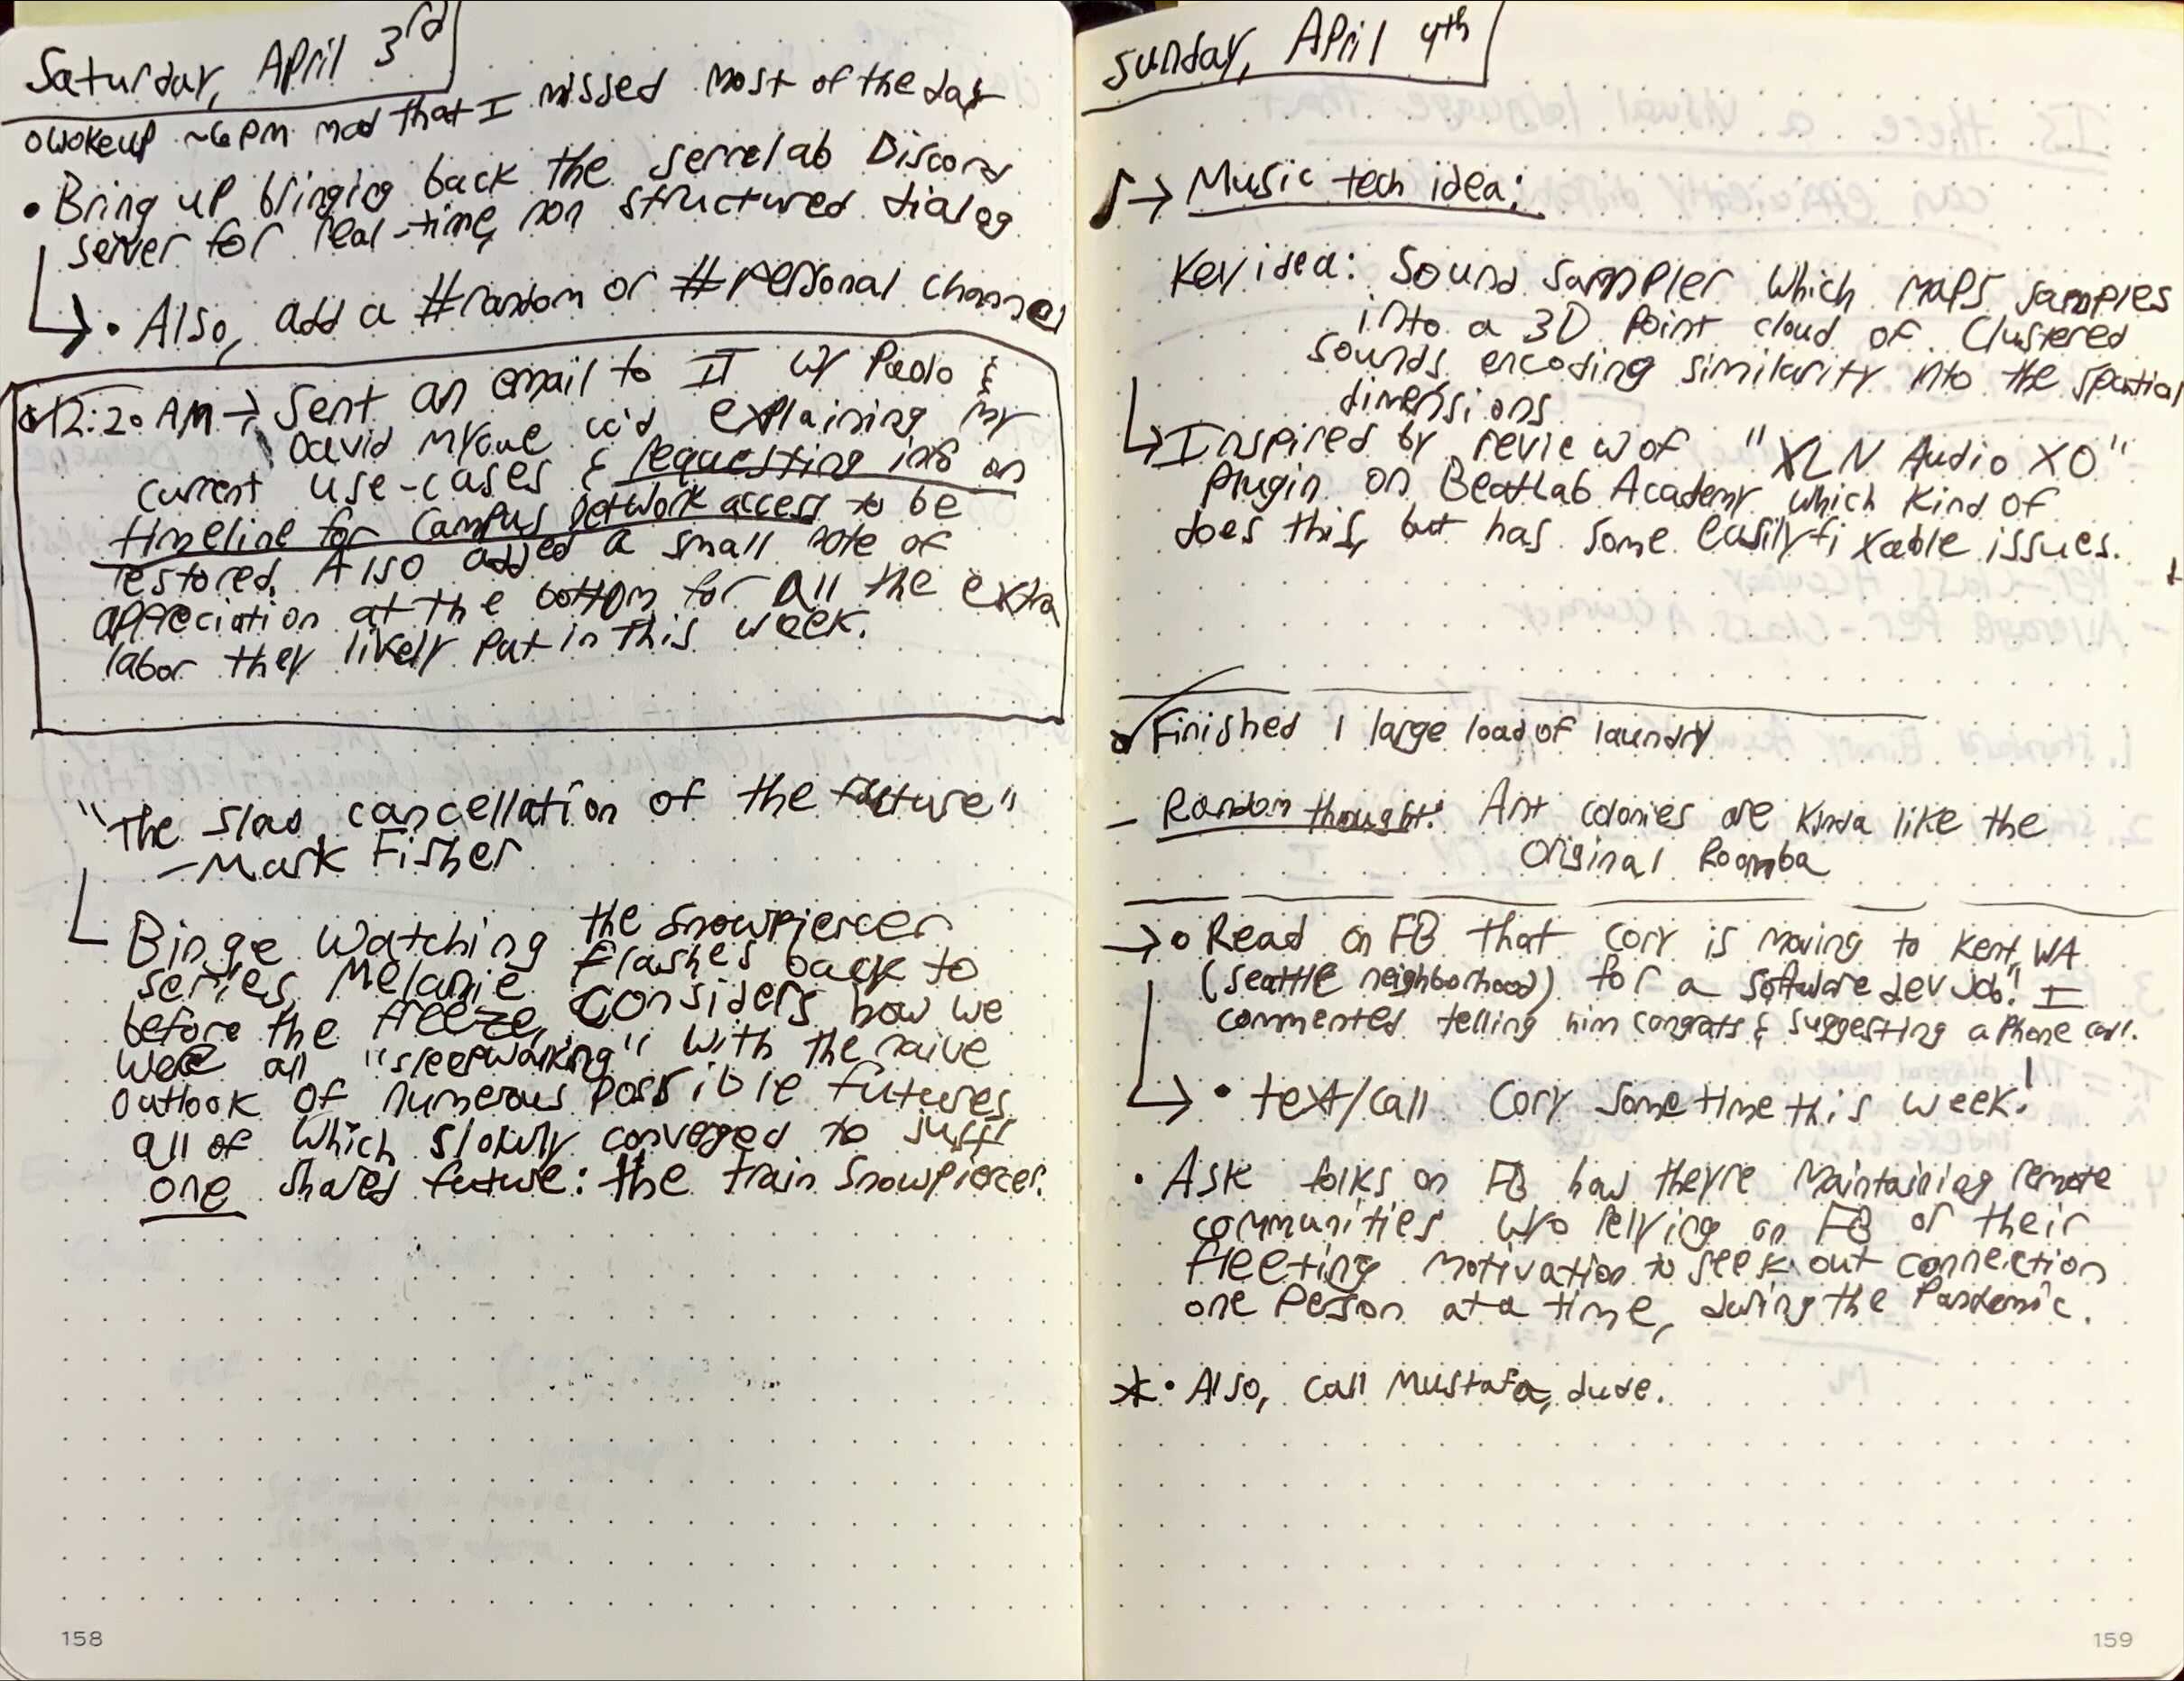 Saturday, April 3rd
o wokeup ~6PM mad that I missed most of the day
• Bring up bringing back the serrelab Discord
server for real-time, non structured dialog
↳ • Also, add a #random or #personal channel
12:20 AM → Sent an email to IT w/ Paolo &
David cc'd explaining my
current use-cases & requesting info on
timeline for campus network access to be
restored. Also added a small note of
appreciation at the bottom for all the extra
labor they likely put in this week.
"The slow cancellation of the future"
- Mark Fisher
Binge watching the Snowpiercer
series, Melanie flashes back to
before the freeze, considers how we
were all "sleepwalking" with the naive
outlook of numerous possible futures
all of which slowly converged to just
one shared future: the train Snowpiercer.
158
Sunday, April 4th
♪→ Music tech idea:
Key idea: Sound sampler which maps samples
into a 3D point cloud of clustered
sounds encoding similarity into the spatial
dimensions
↳ Inspired by review of "XLN Audio XO"
plugin on BeatLab Academy which kind of
does this, but has some easily fixable issues.
Finished 1 large load of laundry
- Random thought: Ant colonies are kinda like the
original Roomba
→ o Read on FB that Cory is moving to Kent, WA
(Seattle neighborhood) for a software dev job! I
commented telling him congrats & suggesting a phone call.
↳ • text/call Cory sometime this week!
• Ask folks on FB how they're maintaining remote
communities w/o relying on FB or their
fleeting motivation to seek out connection
one person at a time, during the pandemic.
* • Also, call Mustafa, dude.
159